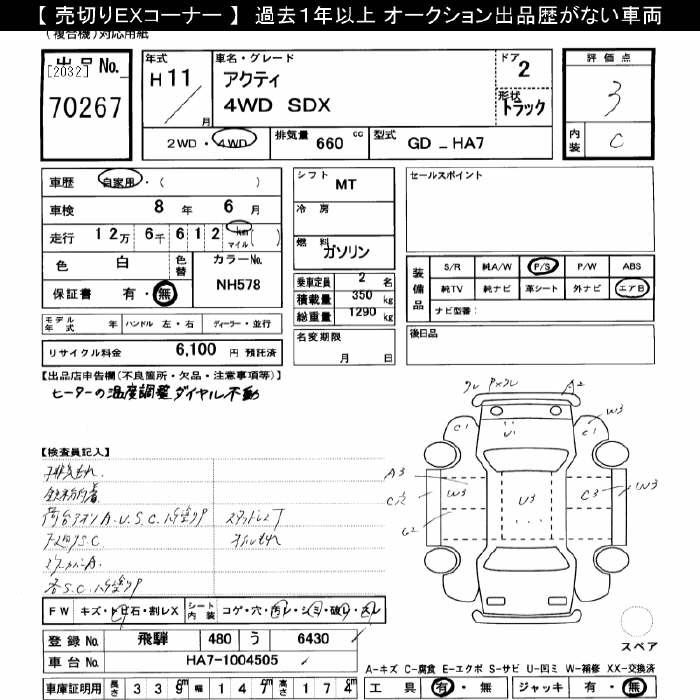 【 売切りEXコーナー 】 過去1年以上 オークション出品歴がない車両
(複合機)対応用紙
出品No.
[2032]
70267
年式
H 11
月
車名・グレード
アクティ
4WD SDX
ドア
2
形状
トラック
2WD・4WD
排気量 660 cc
型式 GD - HA7
評価点
3
内装 C
車歴 自家用・( )
車検 8 年 6 月
走行 12万 6千 6 1 2 Km マイル ( )
色 白
色替
カラーNo. NH578
保証書 有・無
モデル年式 年 ハンドル 左・右 ディーラー・並行
リサイクル料金 6,100 円 預託済
シフト MT
冷房
燃料 ガソリン
乗車定員 2 名
積載量 350 kg
総重量 1290 kg
名変期限
月 日
セールスポイント
装備品
S/R 純A/W P/S P/W ABS
純TV 純ナビ 革シート 外ナビ エアB
ナビ型番：
後日品
【出品店申告欄(不良箇所・欠品・注意事項等)】
ヒーターの温度調整ダイヤル不動
【検査員記入】
A2
W3
C1
U1
C1
A3
W3
U3
C3
W3
G2
FW キズ・トビ石・割レX
シート内装 コゲ・穴・汚レ・シミ・破レ・スレ
登録No. 飛騨 480 う 6430
車台No. HA7-1004505
車庫証明用 長さ 3 3 9 cm 幅 1 4 7 cm 高さ 1 7 4 cm
スペア
A-キズ C-腐食 E-エクボ S-サビ U-凹ミ W-補修 XX-交換済
工具 有・無 ジャッキ 有・無